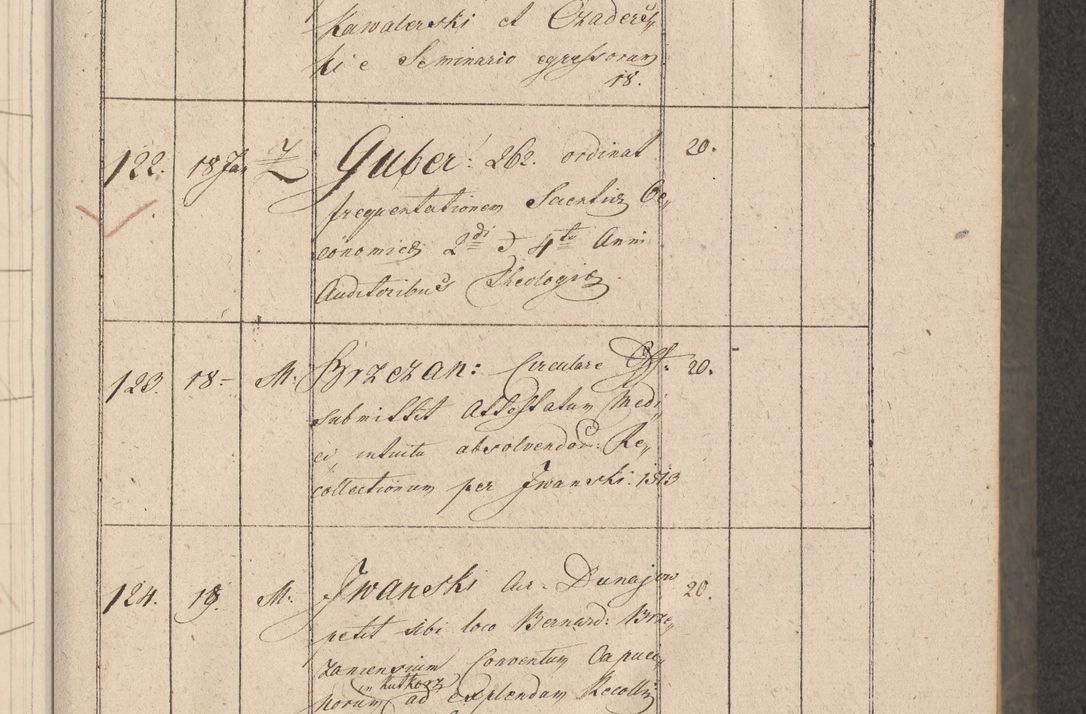 Kawalerski et Czaders„
ki e Seminario egressorum
18.
122. 18 Jan Guber: 262. ordinat 20.
frequentationem Scientiæ Oe„
conomicæ 2di & 4ti Anni
Auditoribus Theologiæ
123. 18- M. Brzezan: Circulare Off. 20.
submittit Attestatum Medi„
ci intuitu absolvendor: Re„
collectionum per Jwanski. 1813
124. 19. M. Jwanski Cur. Dunajow 20.
petit sibi loco Bernard: Brze„
zaniensium Conventum Capuci„
in Kutkorz
norum ad explendam Recolle„